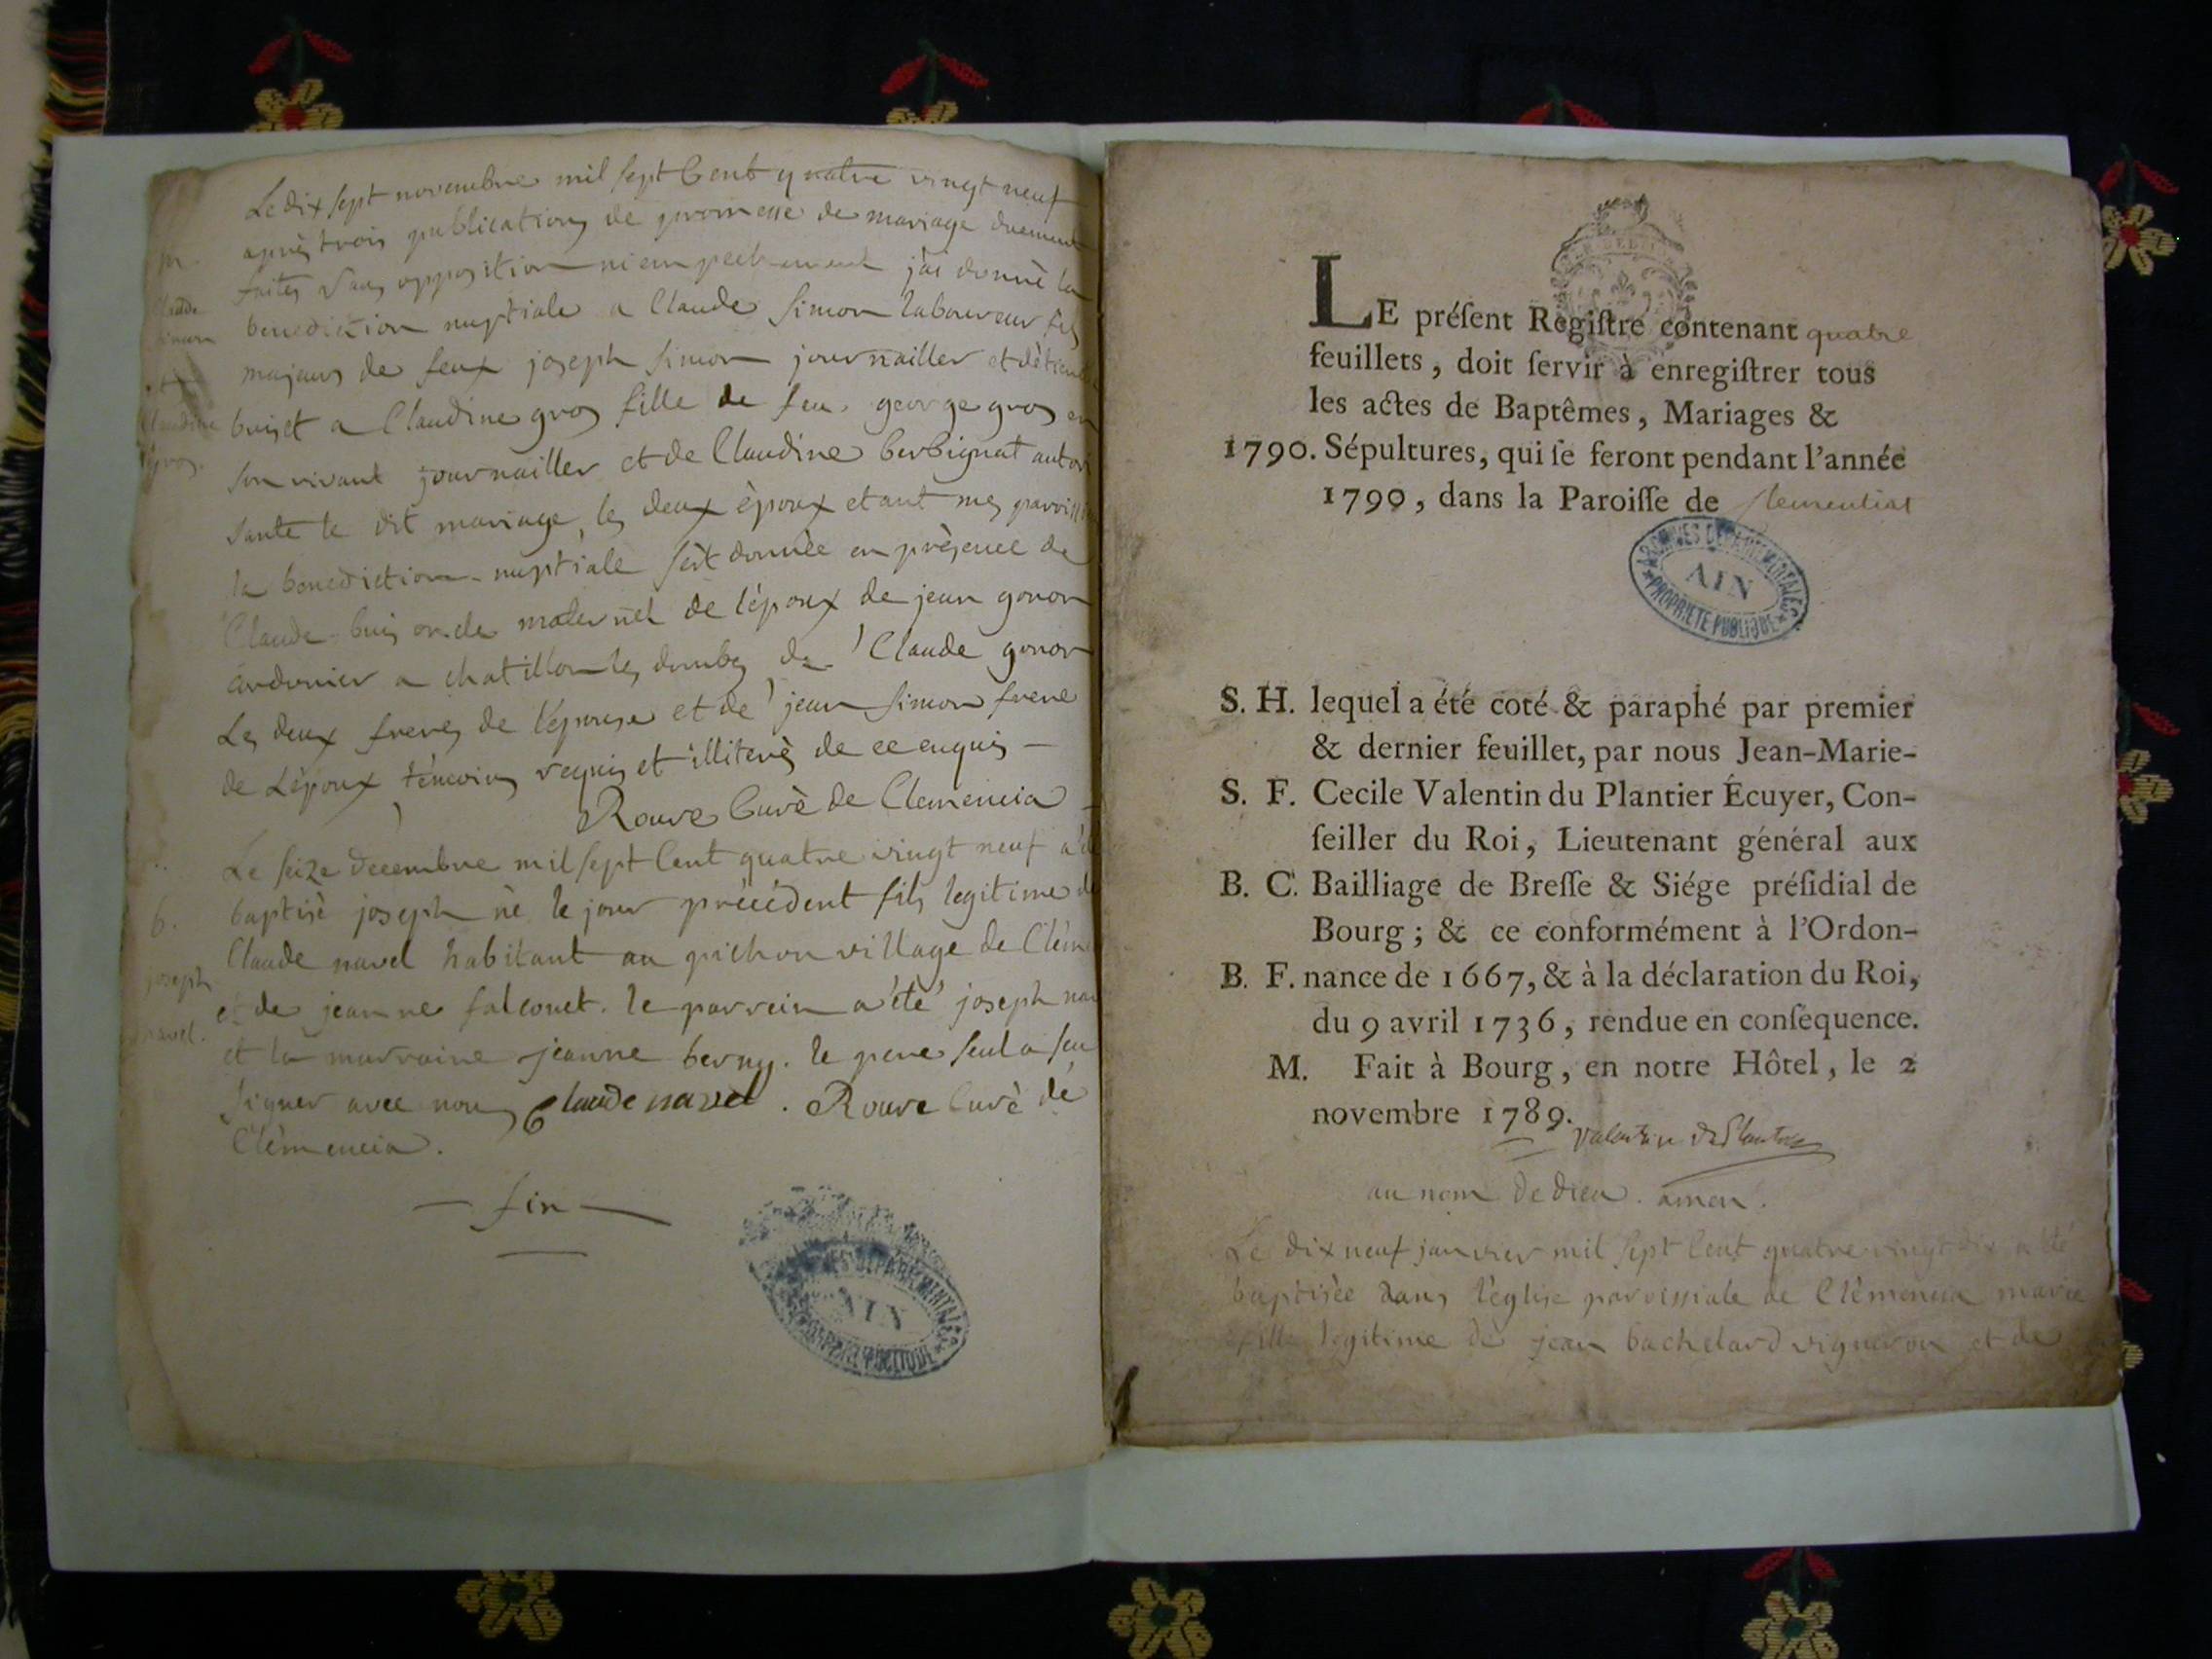 Le dix sept novembre mil sept Cent quatre vingt neuf
après trois publications de promesse de mariage duement
faites sans opposition ni empechement j'ai donné la
benediction nuptiale a Claude Simon laboureur fils
majeur de feux joseph Simon journailler et d'étien
buiset a Claudine gros fille de feu george gros en
son vivant journailler et de Claudine berbignat autori
sante le dit mariage, les deux époux etant mes paroiss
la benediction nuptiale s'est donnée en présence de
Claude buis oncle maternel de l'époux de jean gonon
cordonier a chatillon les dombes de Claude gonon
Les deux freres de l'épouse et de jean Simon frere
de L'époux témoins requis et illiterès de ce enquis
Rouve Curè de Clemencia
m.
Claude
Simon
et
Claudine
gros.
Le seize decembre mil sept Cent quatre vingt neuf a été
baptisè joseph nè le jour précédent fils legitime de
Claude navel habitant au pichon village de Clém
et de jeanne falconet. le parrein a été joseph nav
et la marraine jeanne berny. le pere seul a seu
signer avec nous Claude navel. Rouve Curè de
Clèmencia.
b.
joseph
navel.
fin
ARCHIVES DÉPARTEMENTALES
AIN
PROPRIÉTÉ PUBLIQUE
LE préſent Regiſtre contenant quatre
feuillets, doit ſervir à enregiſtrer tous
les actes de Baptêmes, Mariages &
1790. Sépultures, qui ſe feront pendant l'année
1790, dans la Paroiſſe de Clementiat
ARCHIVES DÉPARTEMENTALES
AIN
PROPRIÉTÉ PUBLIQUE
S. H. lequel a été coté & paraphé par premier
& dernier feuillet, par nous Jean-Marie-
S. F. Cecile Valentin du Plantier Écuyer, Con-
ſeiller du Roi, Lieutenant général aux
B. C. Bailliage de Breſſe & Siége préſidial de
Bourg ; & ce conformément à l'Ordon-
B. F. nance de 1667, & à la déclaration du Roi,
du 9 avril 1736, rendue en conſequence.
M. Fait à Bourg, en notre Hôtel, le 2
novembre 1789.
Valentin du Plantier
au nom de dieu. amen.
Le dix neuf janvier mil sept Cent quatre vingt dix a été
baptisèe dans l'église paroissiale de Clèmencia marie
fille legitime de jean bachelard vigneron et de